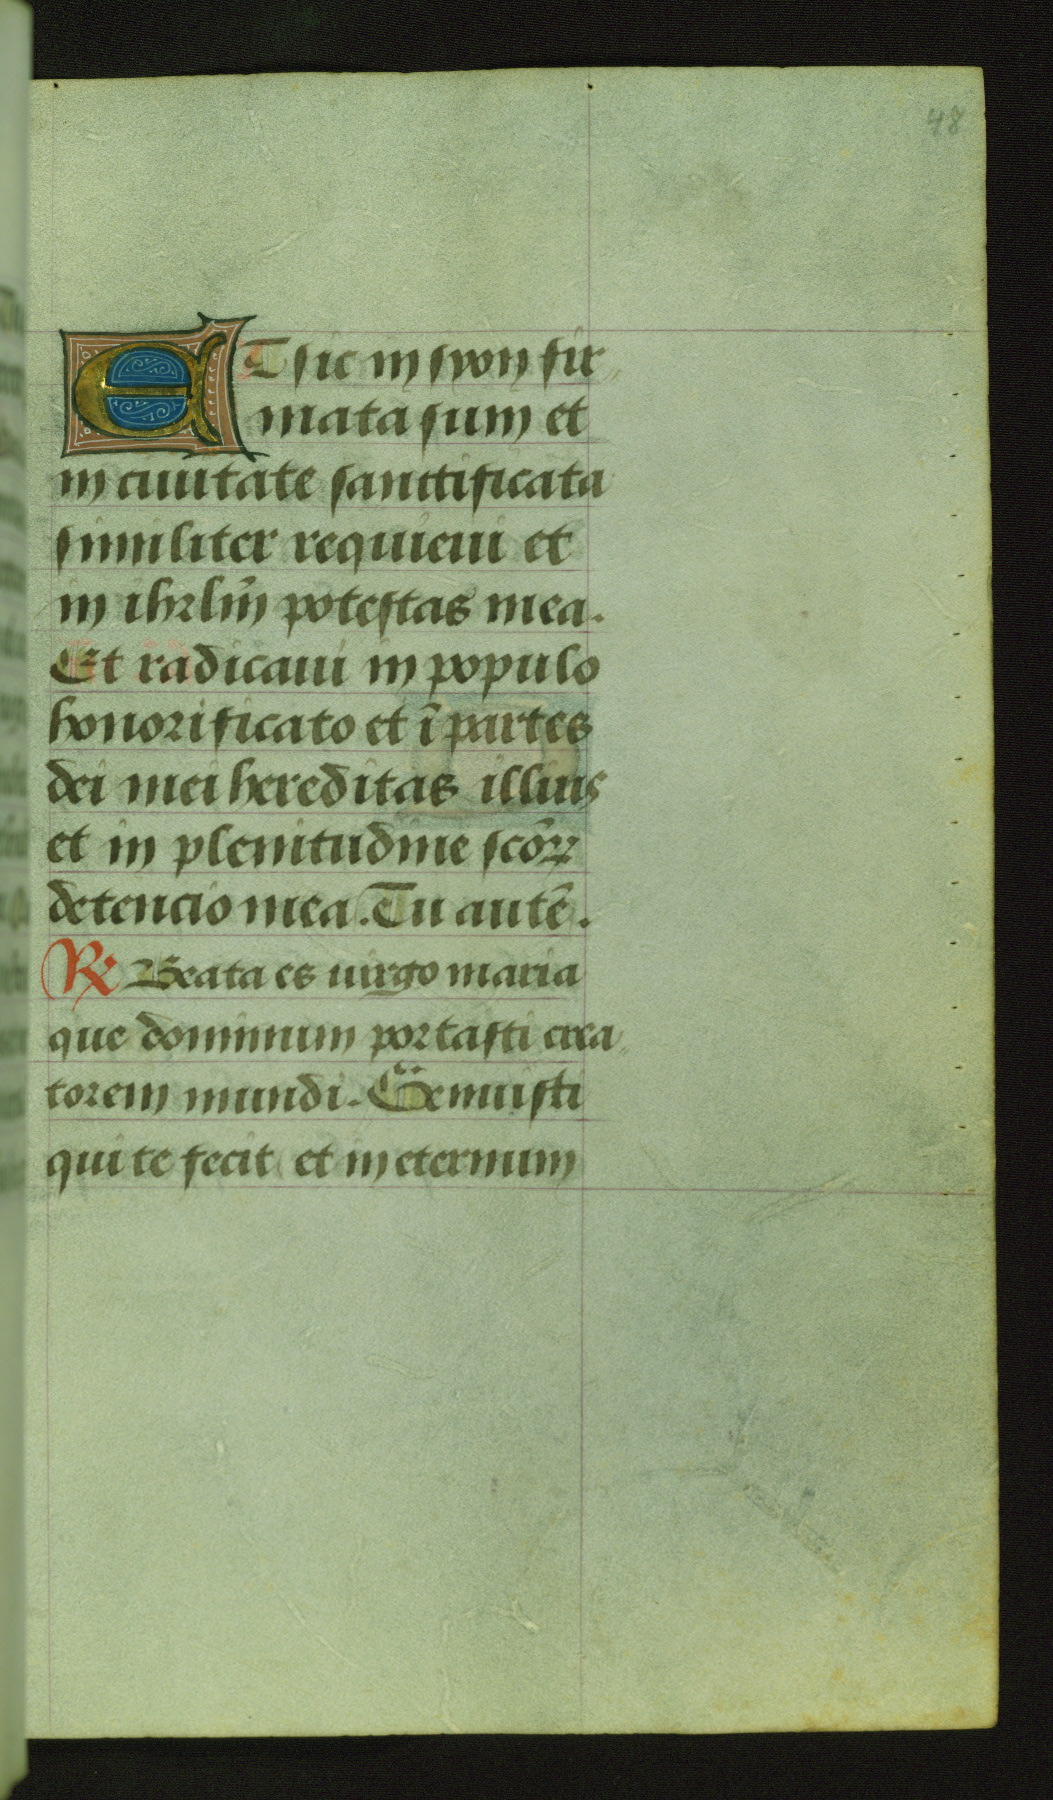 48
ET sic in syon fir
mata sum et
in ciuitate sanctificata
similiter requieui et
in ihrlm̄ potestas mea.
Et radicaui in populo
honorificato et ī partes
dei mei hereditas illius
et in plenitudine scōꝝ
detencio mea. Tu autē.
℟ Beata es uirgo maria
que dominum portasti crea
torem mundi. Genuisti
qui te fecit et in eternum